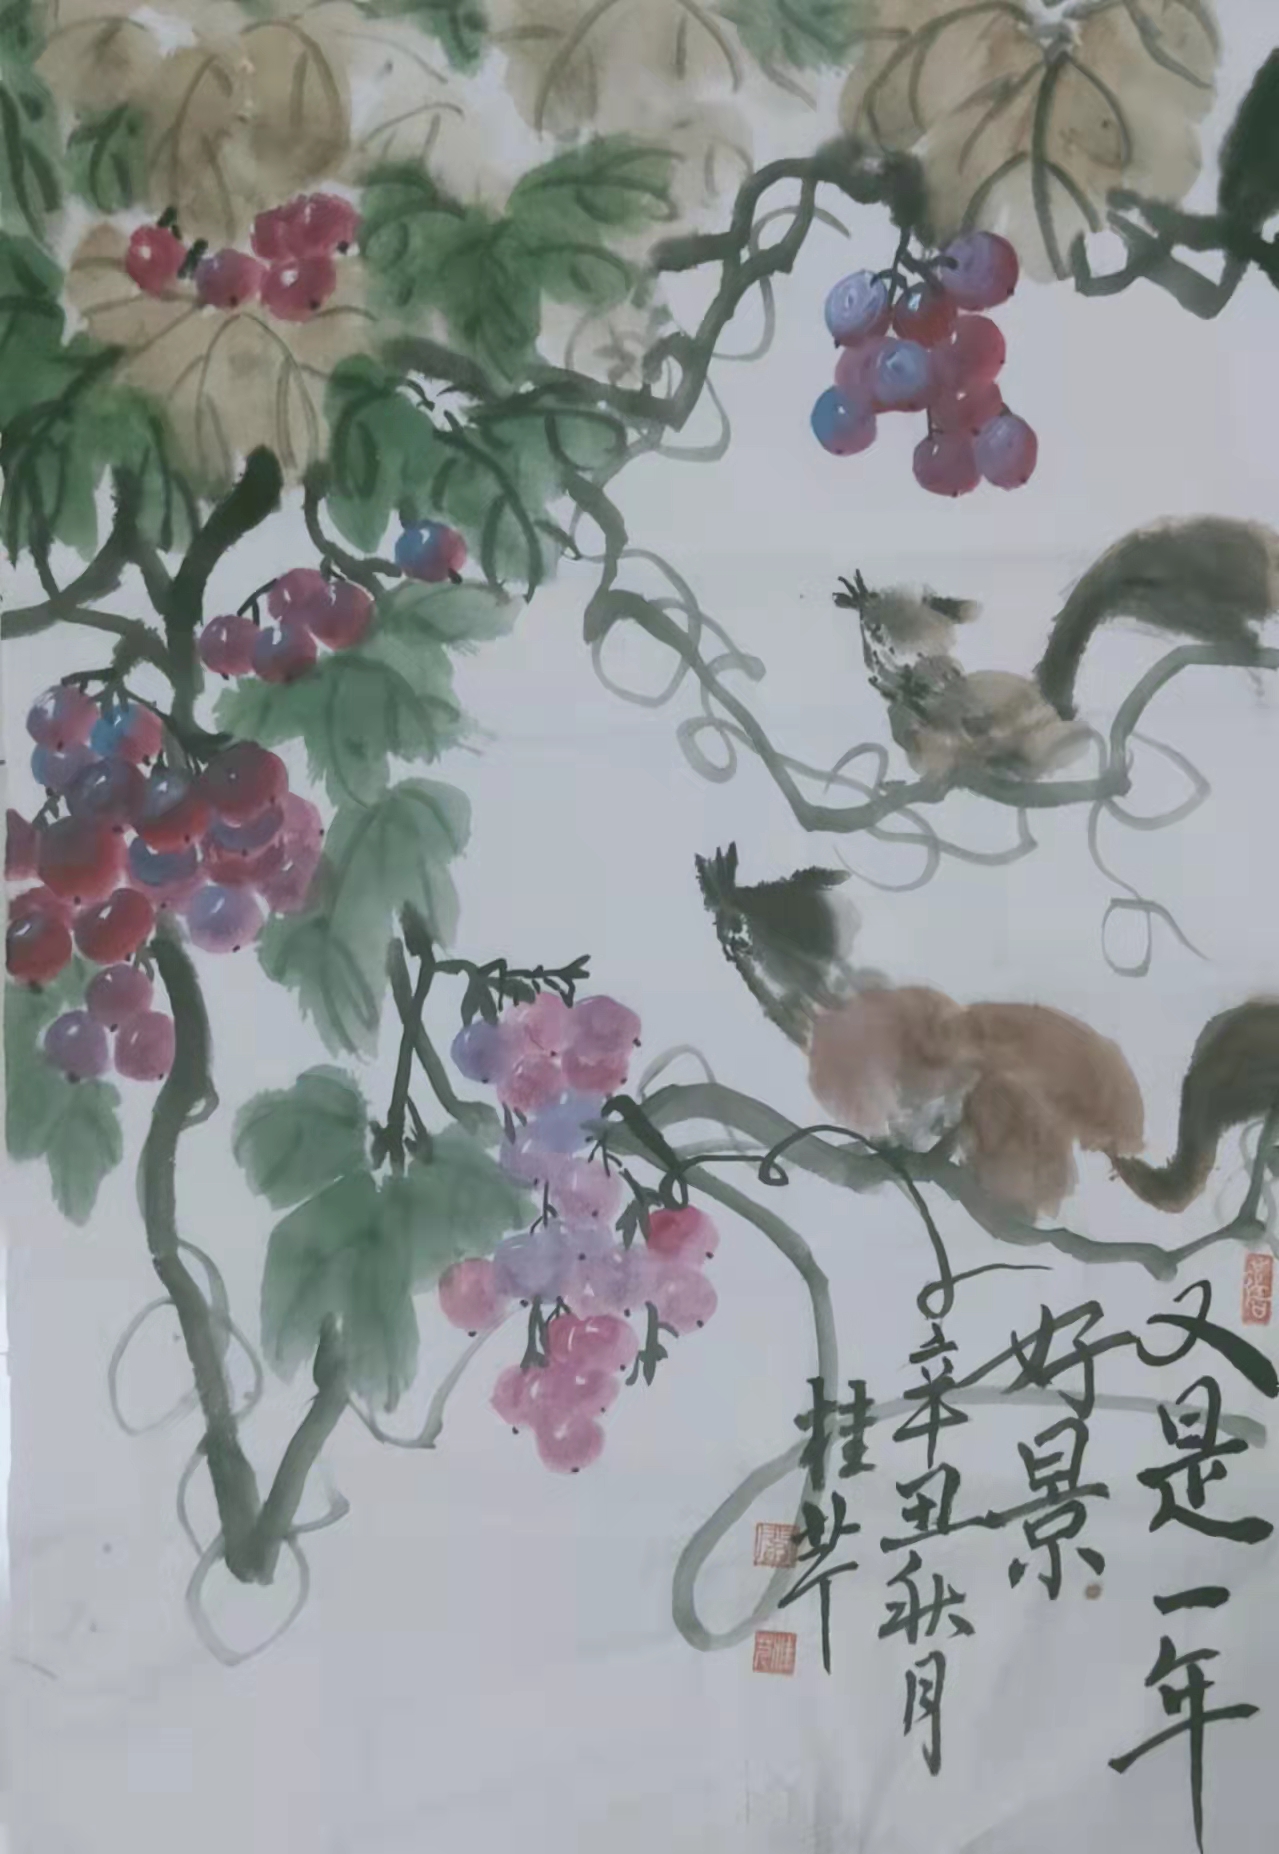 又是一年
好景
辛丑秋月
桂芹